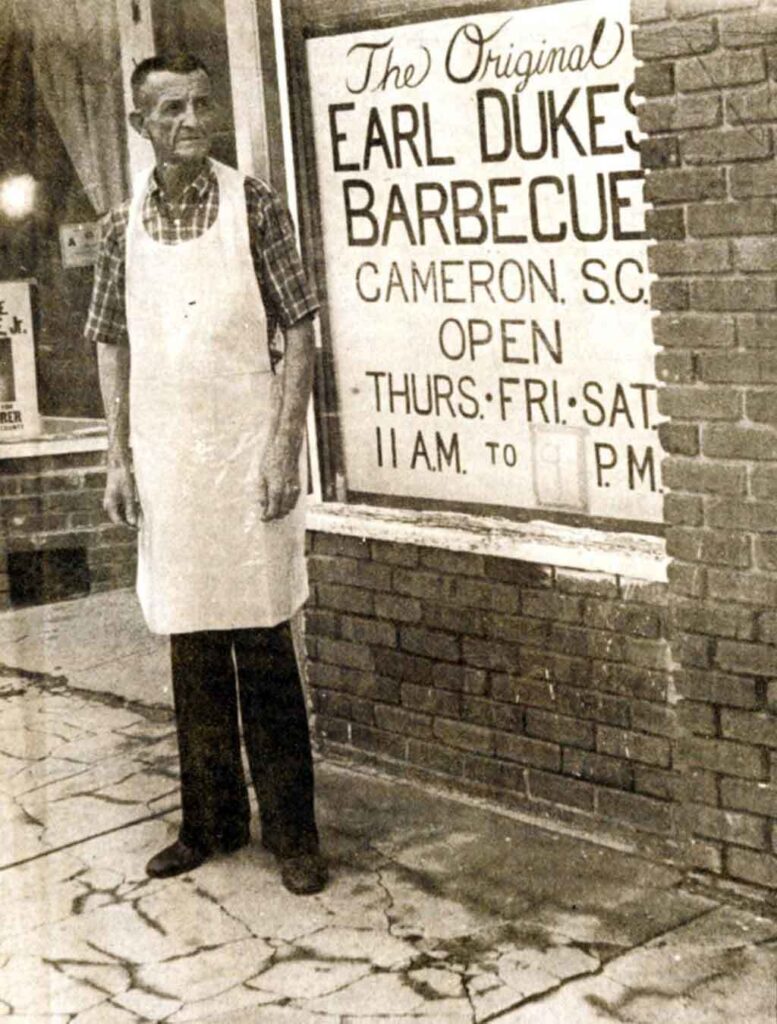 The Original
EARL DUKES
BARBECUE
CAMERON. S.C.
OPEN
THURS.·FRI.·SAT.
11 A.M. TO 9 P.M.
A
E
Jr.
FOR
RER